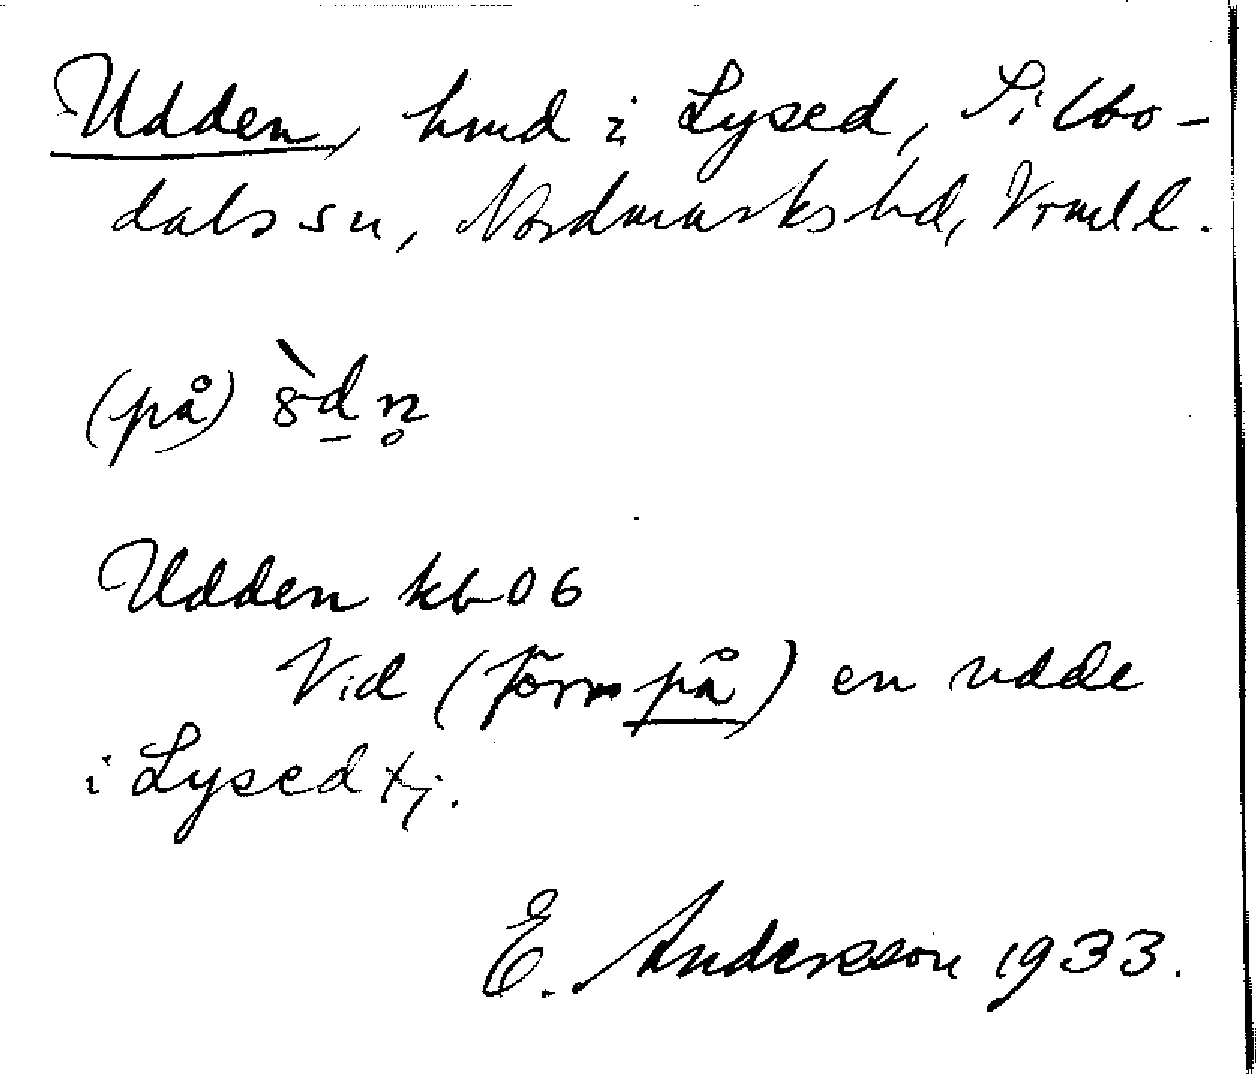 Udden, hmd i Lysed, Silbo-
dals sn, Nordmarks hd, Vrml l.
(på) 8̀d̲n̥
Udden kb 06
Vid (förr på) en udde
i Lysedtj.
E. Andersson 1933.